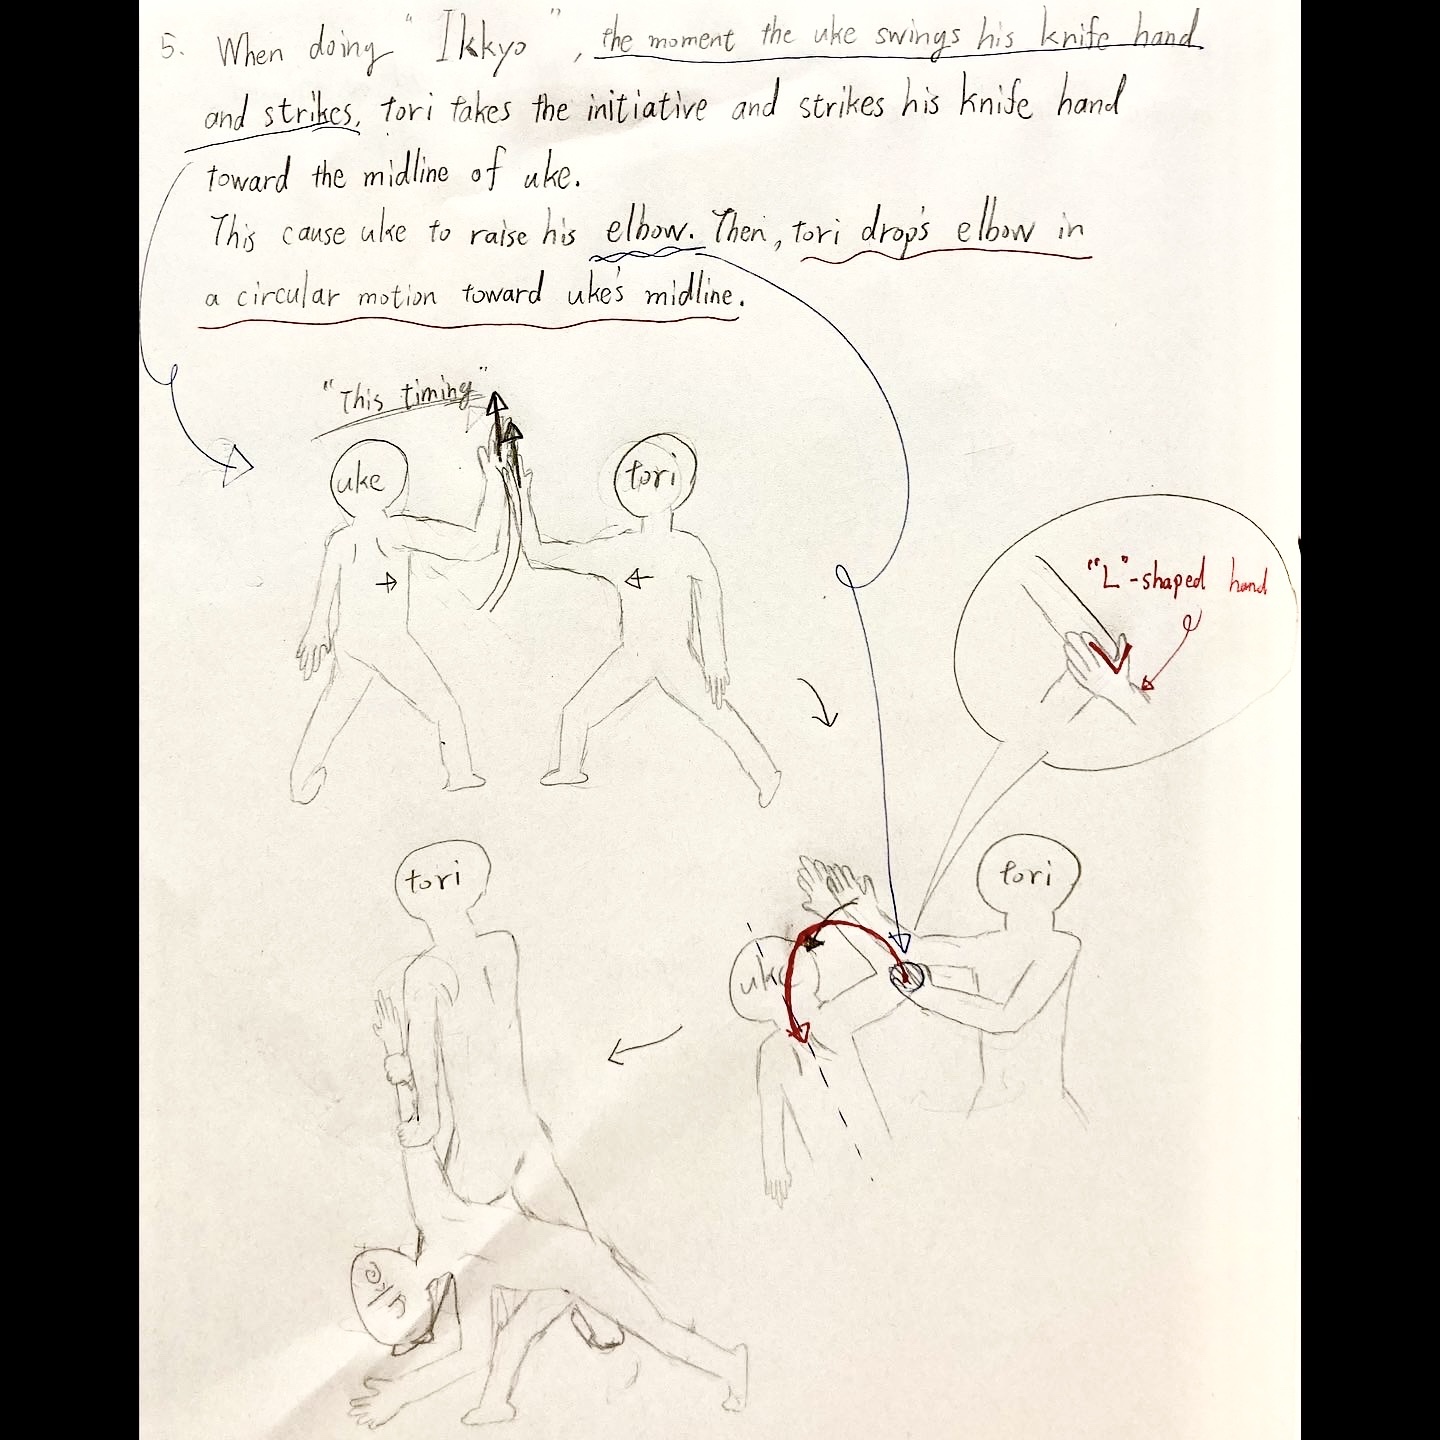 5. When doing "Ikkyo", the moment the uke swings his knife hand
and strikes, tori takes the initiative and strikes his knife hand
toward the midline of uke.
This cause uke to raise his elbow. Then, tori drop's elbow in
a circular motion toward uke's midline.
"This timing"
uke
tori
"L"-shaped hand
tori
tori
uke
uke